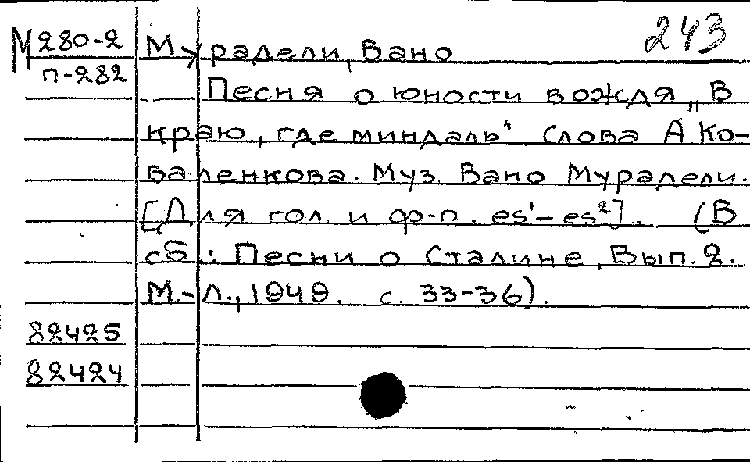 243
М280-2 Мурадели, Вано
п-282 Песня о юности вождя „В
краю, где миндаль" Слова А.Ко-
валенкова. Муз. Вано Мурадели.
[Для гол. и ф-п. es¹-es²]. (В
сб.: Песни о Сталине, Вып. 2.
М.-Л., 1949. с. 33-36).
82425
82424